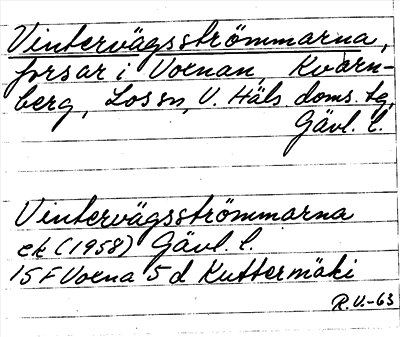 Vintervägsströmmarna,
forsar i Voxnan, Kvarn-
berg, Lossn, V. Häls. doms. tg,
Gävl. l.
Vintervägsströmmarna
ek (1958) Gävl. l.
15 F Voxna 5 d Kuttermäki
R.V.-63